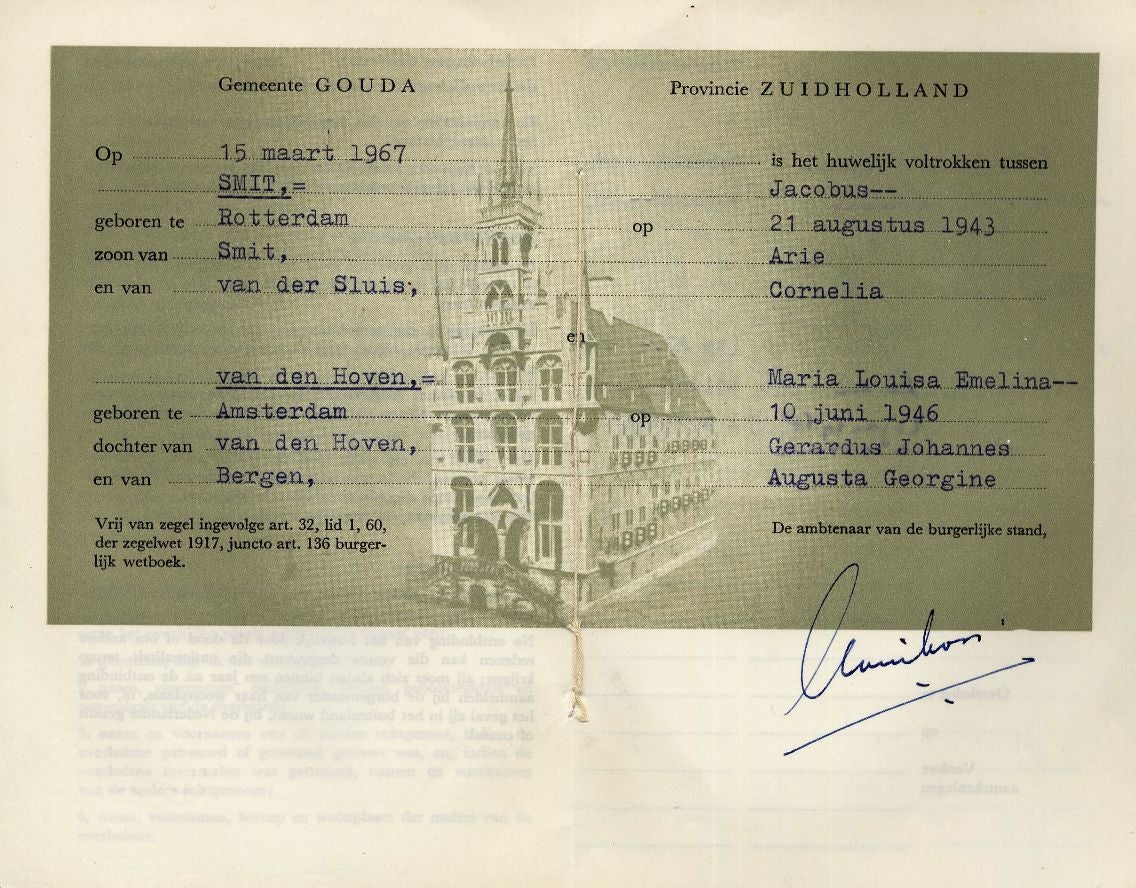 Gemeente GOUDA Provincie ZUIDHOLLAND
Op 15 maart 1967 is het huwelijk voltrokken tussen
SMIT,= Jacobus--
geboren te Rotterdam op 21 augustus 1943
zoon van Smit, Arie
en van van der Sluis, Cornelia
en
van den Hoven,= Maria Louisa Emelina--
geboren te Amsterdam op 10 juni 1946
dochter van van den Hoven, Gerardus Johannes
en van Bergen, Augusta Georgine
Vrij van zegel ingevolge art. 32, lid 1, 60,
der zegelwet 1917, juncto art. 136 burger-
lijk wetboek.
De ambtenaar van de burgerlijke stand,